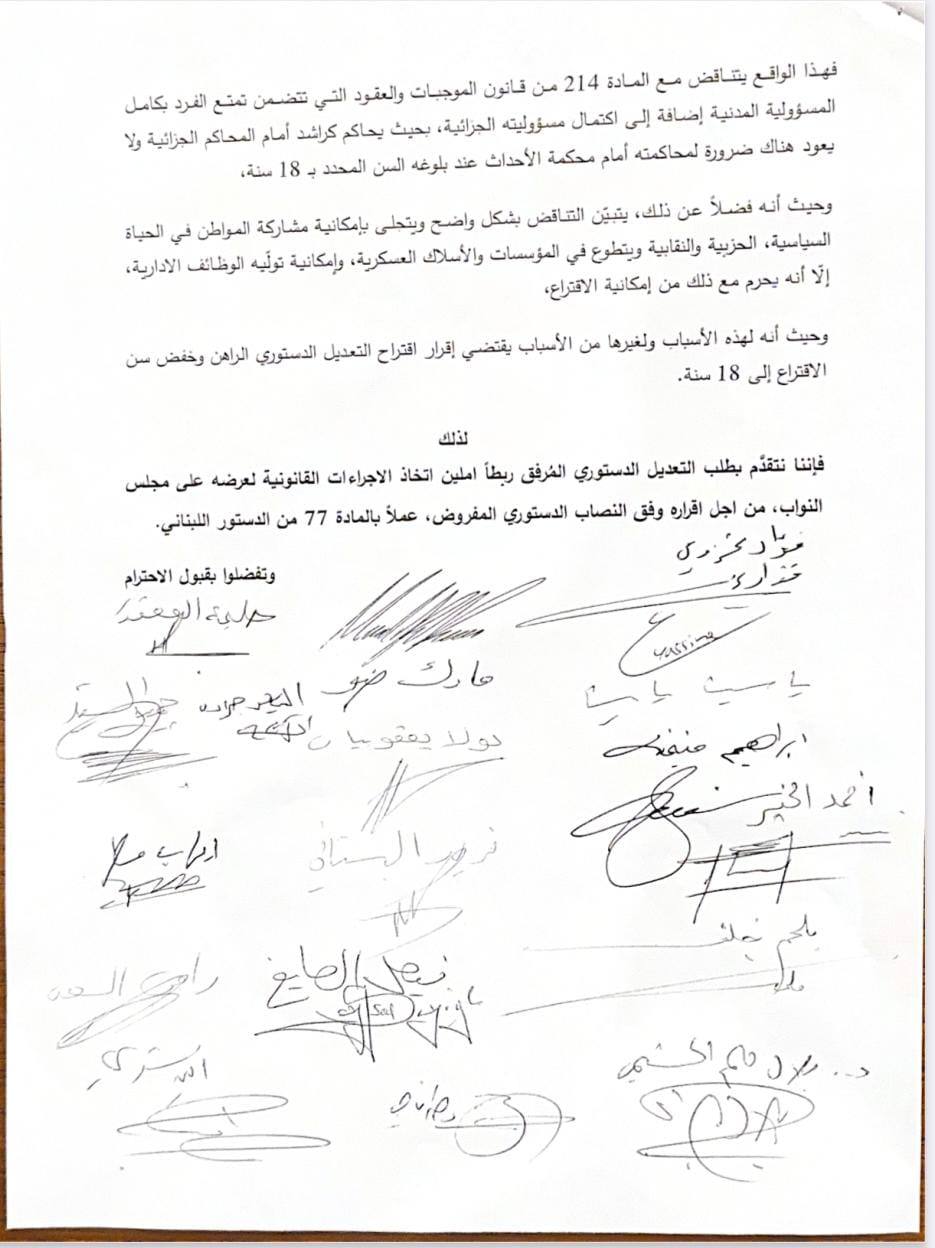 فهذا الواقع يتناقض مع المادة 214 من قانون الموجبات والعقود التي تتضمن تمتع الفرد بكامل
المسؤولية المدنية إضافة إلى اكتمال مسؤوليته الجزائية، بحيث يحاكم كراشد أمام المحاكم الجزائية ولا
يعود هناك ضرورة لمحاكمته أمام محكمة الأحداث عند بلوغه السن المحدد بـ 18 سنة،
وحيث أنه فضلاً عن ذلك، يتبيّن التناقض بشكل واضح ويتجلى بإمكانية مشاركة المواطن في الحياة
السياسية، الحزبية والنقابية ويتطوع في المؤسسات والأسلاك العسكرية، وإمكانية تولّيه الوظائف الادارية،
إلّا أنه يحرم مع ذلك من إمكانية الاقتراع،
وحيث أنه لهذه الأسباب ولغيرها من الأسباب يقتضي إقرار اقتراح التعديل الدستوري الراهن وخفض سن
الاقتراع إلى 18 سنة.
لذلك
فإننا نتقدَّم بطلب التعديل الدستوري المُرفق ربطاً املين اتخاذ الاجراءات القانونية لعرضه على مجلس
النواب، من اجل اقراره وفق النصاب الدستوري المفروض، عملاً بالمادة 77 من الدستور اللبناني.
فؤاد مخزومي
وتفضلوا بقبول الاحترام
حليمة القعقور
Yassine
مارك ضو
ياسين ياسين
جميل السيد
بولا يعقوبيان
ابراهيم منيمنه
أحمد الخير
فريد البستاني
ايهاب
ملحم خلف
فيصل الصايغ
د. بلال الحشيمي